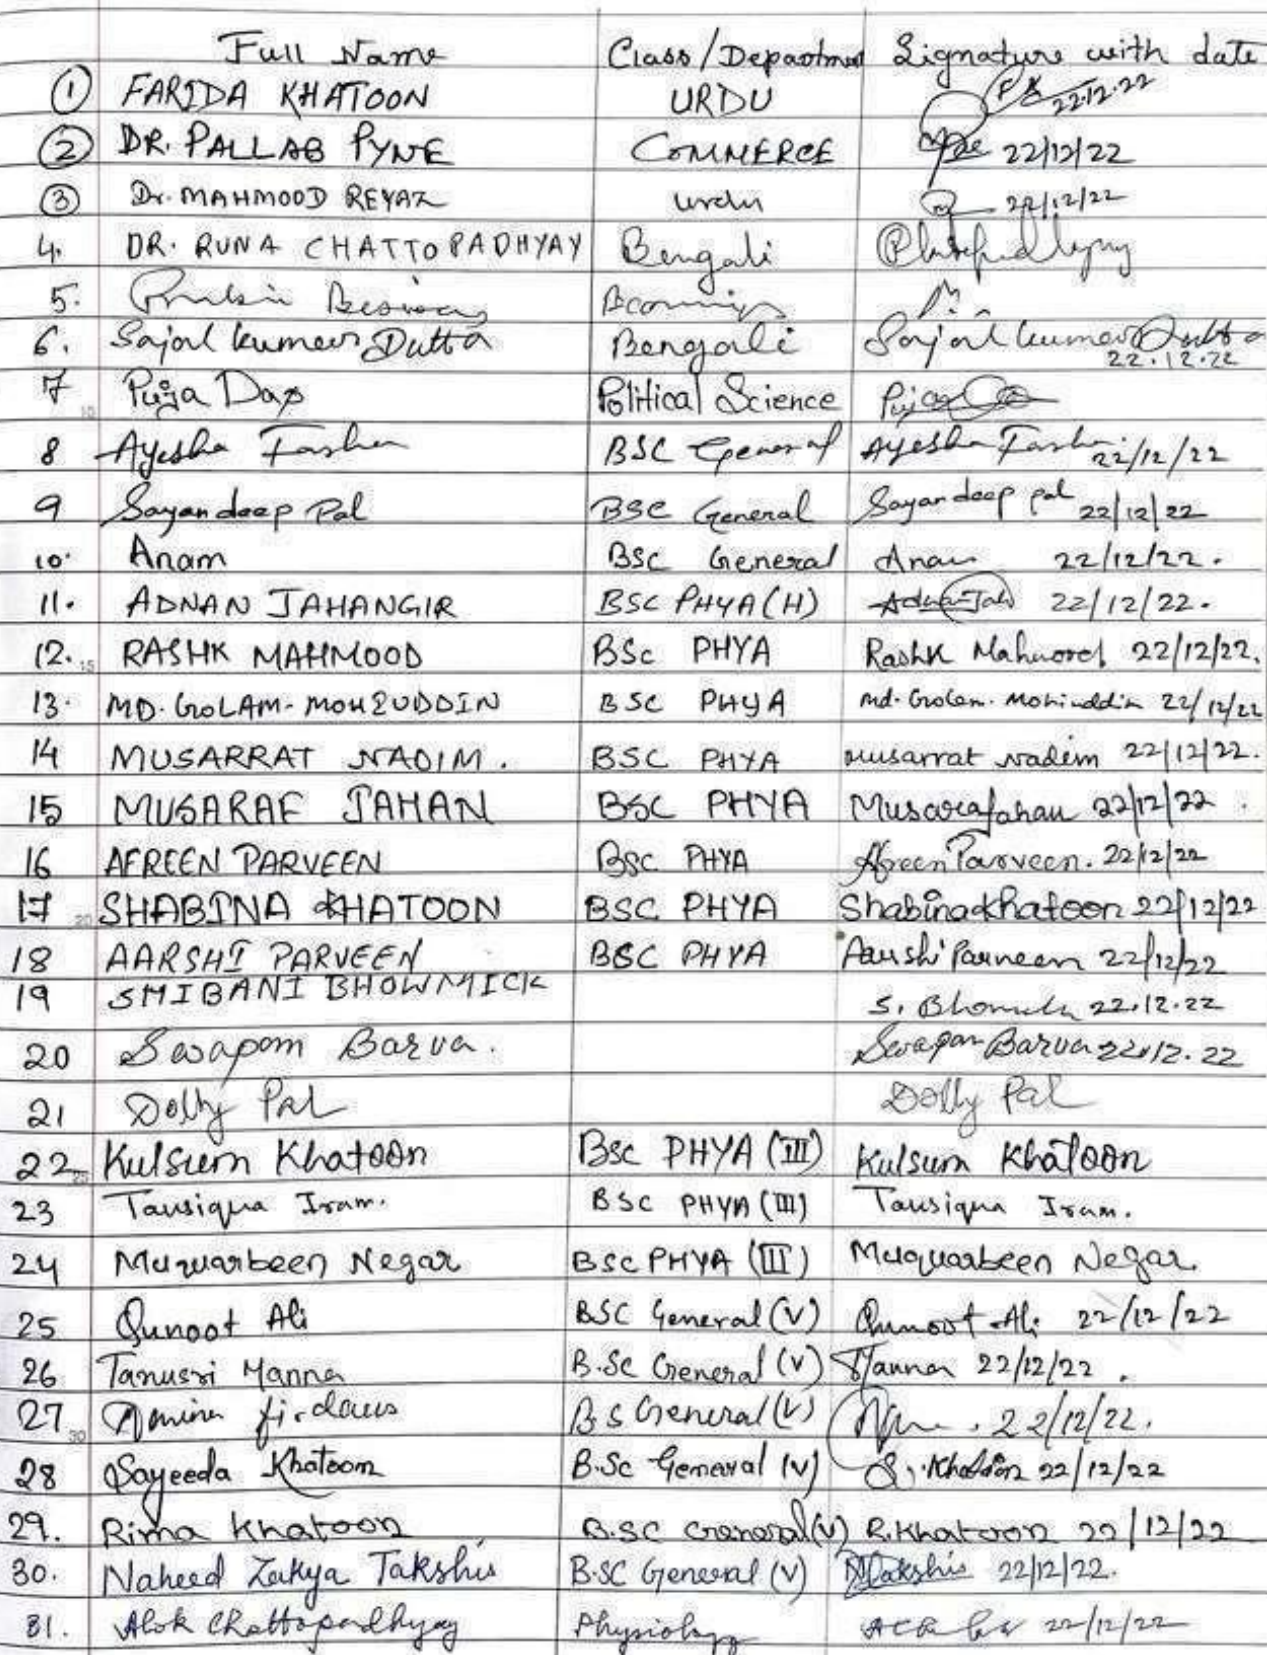 Full Name Class/Department Signature with date
1 FARIDA KHATOON URDU 22.12.22
2 DR. PALLAB PYNE COMMERCE 22/12/22
3 Dr. MAHMOOD REYAZ urdu 22/12/22
4. DR. RUNA CHATTOPADHYAY Bengali
5.
6. Sajal kumar Dutta Bengali Sajal kumar Dutta
22.12.22
7 Puja Das Political Science Puja
8 Ayesha BSC General Ayesha 22/12/22
9 Sayandeep Pal BSC General Sayandeep pal 22/12/22
10. Anam BSC General Anam 22/12/22.
11. ADNAN JAHANGIR BSC PHYA(H) 22/12/22.
12. RASHK MAHMOOD BSc PHYA Rashk Mahmood 22/12/22.
13. MD. GOLAM. MOHIUDDIN BSC PHYA md. Golam. Mohiuddin 22/12/22
14 MUSARRAT NADIM. BSC PHYA Musarrat Nadim 22/12/22.
15 MUSARAF JAHAN BSC PHYA Musaraf Jahan 22/12/22.
16 AFREEN PARVEEN BSC PHYA Afreen Parveen. 22/12/22
17 SHABINA KHATOON BSC PHYA Shabina Khatoon 22/12/22
18 AARSHI PARVEEN BSC PHYA Aarshi Parveen 22/12/22
19 SHIBANI BHOWMICK S. 22.12.22
20 Swapan Barua. Swapan Barua 22.12.22
21 Dolly Pal Dolly Pal
22 Kulsum Khatoon BSc PHYA (III) Kulsum Khatoon
23 Tausiqua Iram. BSC PHYA (III) Tausiqua Iram.
24 Muquarbeen Negar BSC PHYA (III) Muquarbeen Negar
25 Qunoot Ali BSC General (V) Qunoot Ali 22/12/22
26 Tanusri Manna B.Sc General (V) TManna 22/12/22.
27 Amina firdaus B.S General (V) 22/12/22.
28 Sayeeda Khatoon B.Sc General (V) S. Khatoon 22/12/22
29. Rima Khatoon B.SC General (V) R.Khatoon 22/12/22
30. Naheed Zakya Takshis B.SC General (V) 22/12/22.
31. Alok Chattopadhyay Physiology 22/12/22